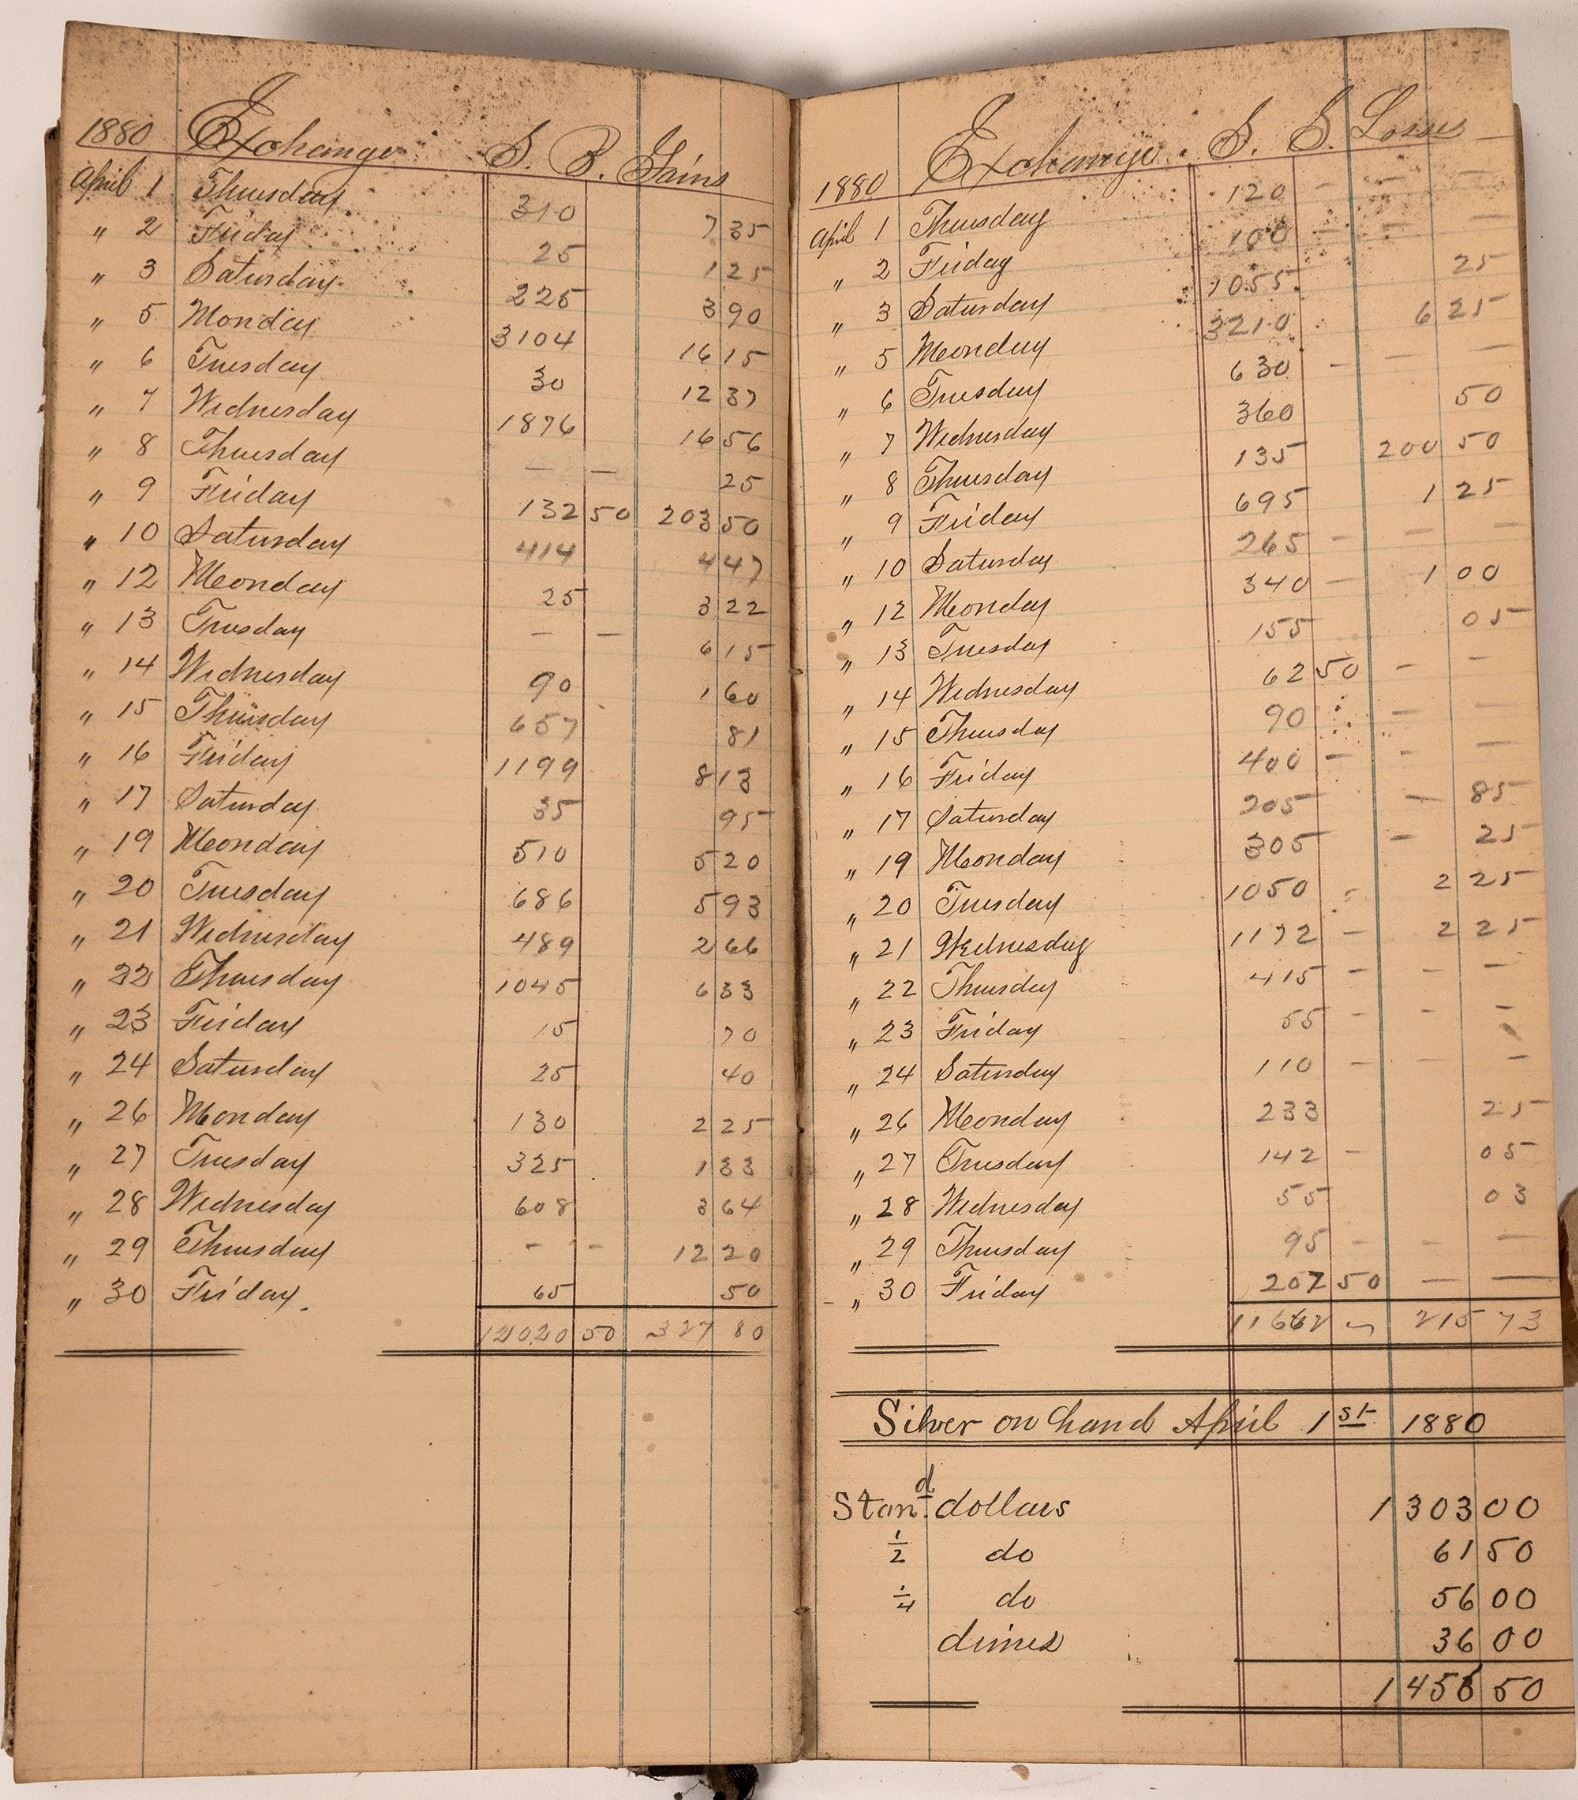 1880 Exchange S. B. Gains
April 1 Thursday 310 7 35
" 2 Friday 25 1 25
" 3 Saturday 225 3 90
" 5 Monday 3104 16 15
" 6 Tuesday 30 12 37
" 7 Wednesday 1876 16 56
" 8 Thursday — — 25
" 9 Friday 132 50 203 50
" 10 Saturday 414 4 47
" 12 Monday 25 3 22
" 13 Tuesday — — 6 15
" 14 Wednesday 90 1 60
" 15 Thursday 657 81
" 16 Friday 1199 8 13
" 17 Saturday 35 95
" 19 Monday 510 5 20
" 20 Tuesday 686 5 93
" 21 Wednesday 489 2 66
" 22 Thursday 1045 6 33
" 23 Friday 15 70
" 24 Saturday 25 40
" 26 Monday 130 2 25
" 27 Tuesday 325 1 33
" 28 Wednesday 608 3 64
" 29 Thursday - - 12 20
" 30 Friday. 65 50
12020 50 327 80
1880 Exchange. S. S. Losses
April 1 Thursday 120 — — —
" 2 Friday 100 — — —
" 3 Saturday 1055 25
" 5 Monday 3210 6 25
" 6 Tuesday 630 - — —
" 7 Wednesday 360 50
" 8 Thursday 135 200 50
" 9 Friday 695 1 25
" 10 Saturday 265 - — —
" 12 Monday 340 — 1 00
" 13 Tuesday 155 05
" 14 Wednesday 62 50 — —
" 15 Thursday 90 — —
" 16 Friday 400 — - —
" 17 Saturday 205 — 85
" 19 Monday 305 — 25
" 20 Tuesday 1050 - 2 25
" 21 Wednesday 1172 — 2 25
" 22 Thursday 415 — — —
" 23 Friday 55 — - -
" 24 Saturday 110 — — —
" 26 Monday 233 25
" 27 Tuesday 142 — 05
" 28 Wednesday 55 03
" 29 Thursday 95 — — —
" 30 Friday 207 50 — —
11662 ~ 215 73
Silver on hand April 1st 1880
Stand. dollars 1303 00
1/2 do 61 50
1/4 do 56 00
dimes 36 00
1456 50